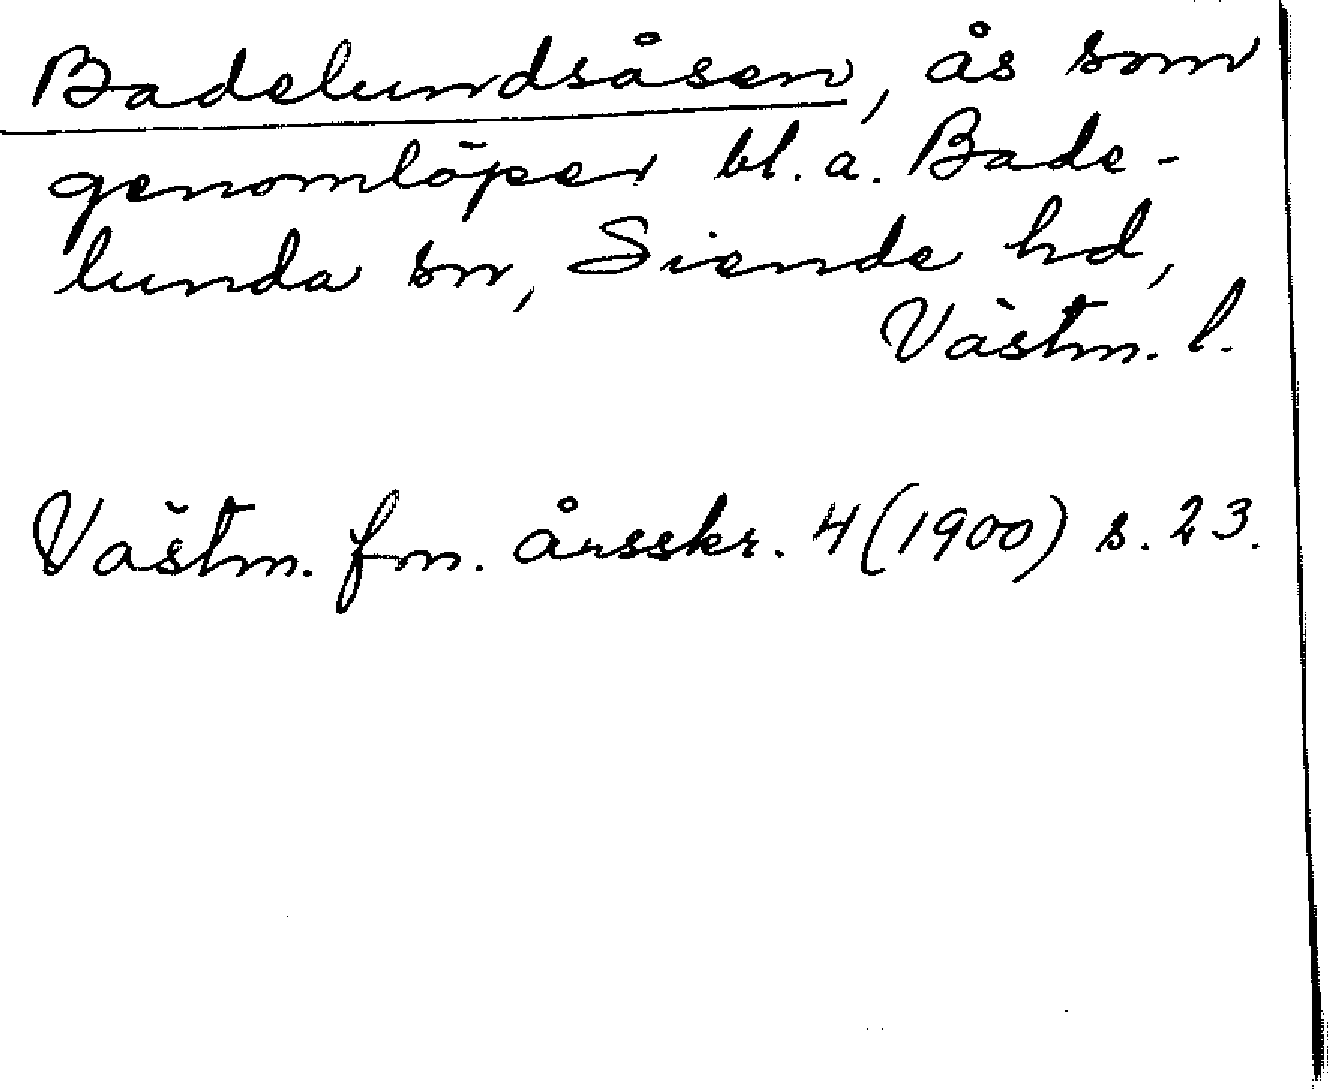 Badelundsåsen, ås som
genomlöper bl.a. Bade-
lunda sn, Siende hd,
Västm. l.
Västm. fm. årsskr. 4 (1900) s. 23.